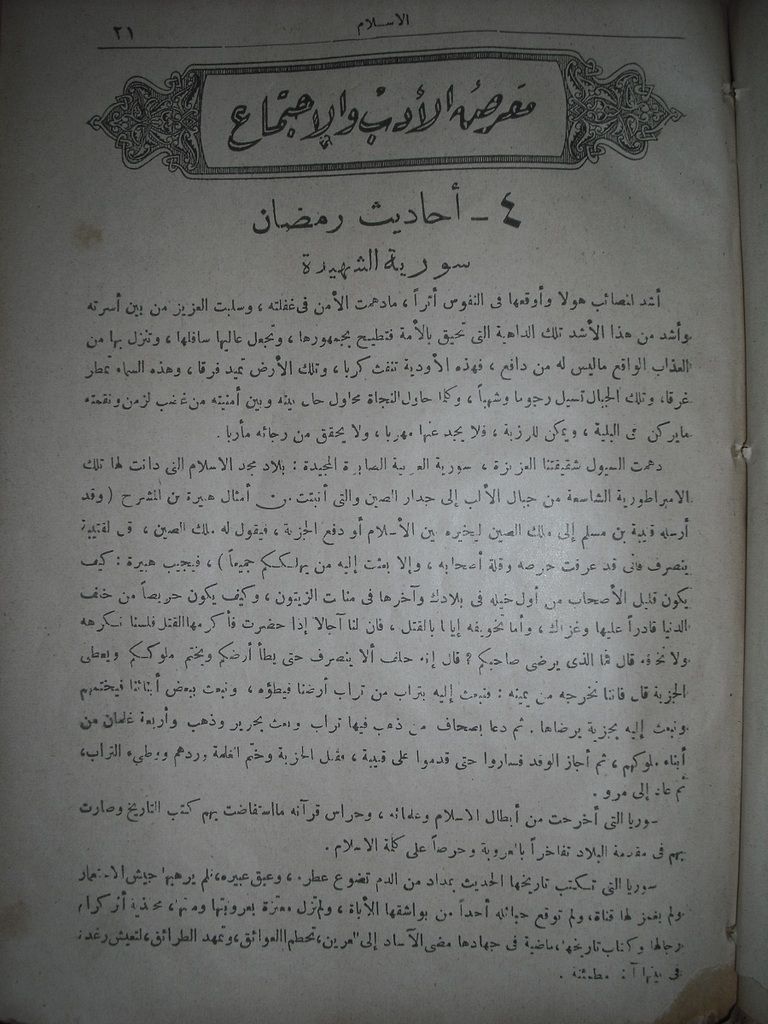 الاسلام
٢١
معرض الأدب والاجتماع
٤ – أحاديث رمضان
سورية الشهيدة
أشد المصائب هولا وأوقعها فى النفوس أثراً ، مادهمت الأمن فى غفلته ، وسلبت العزيز من بين أسرته
وأشد من هذا الأشد تلك الداهية التى تحيق بالأمة فتطيح بجمهورها ، وتجعل عاليها سافلها ، وتنزل بها من
العذاب الواقع ماليس له من دافع ، فهذه الأودية تنفث كربا ، وتلك الأرض تميد فرقا ، وهذه السماء تمطر
غرقا، وتلك الجبال تسيل رجوما وشهباً ، وكلما حاول النجاة محاول حال بينه وبين أمنيته من غضب الزمن ونقمته
مايركن فى البلية ، ويمكن للرزية ، فلا يجد عنها مهربا ، ولا يحقق من رجائه مأربا .
دهمت السيول شقيقتنا العزيزة ، سورية العربية الصابرة المجيدة : بلاد مجد الاسلام التى دانت لها تلك
الامبراطورية الشاسعة من جبال الألب إلى جدار الصين والتى أنبتت من أمثال هبيرة بن المشرح ( وقد
أرسله قتيبة بن مسلم إلى ملك الصين ليخيره بين الأسلام أو دفع الجزية ، فيقول له ملك الصين ، قل لقتيبة
ينصرف فانى قد عرفت حرصه وقلة أصحابه ، وإلا بعثت إليه من يهلككم جميعاً ) ، فيجيب هبيرة : كيف
يكون قليل الأصحاب من أول خيله فى بلادك وآخرها فى منابت الزيتون ، وكيف يكون حريصاً من خلف
الدنيا قادراً عليها وغزاك ، وأما تخويفه إيانا بالقتل ، فان لنا آجالا إذا حضرت فأكرمها القتل فلسنا نكرهه
ولا نخافه قال فما الذى يرضى صاحبكم ؟ قال إنه حلف ألا ينصرف حتى يطأ أرضكم ويختم ملوككم ويعطى
الجزية قال فاننا نخرجه من يمينه : فنبعث إليه بتراب من تراب أرضنا فيطؤه ، ونبعث ببعض أبنائنا فيختمهم
ونبعث إليه بجزية يرضاها . ثم دعا بصحاف من ذهب فيها تراب وبعث بحرير وذهب وأربعة غلمان من
أبناء ملوكهم ، ثم أجاز الوفد فساروا حتى قدموا على قتيبة ، فقبل الجزية وختم الغلمة وردهم ووطىء التراب،
ثم عاد إلى مرو .
سوريا التى أخرجت من أبطال الاسلام وعلمائه ، وحراس قرآنه مااستفاضت بهم كتب التاريخ وصارت
بهم فى مقدمة البلاد تفاخراً بالعروبة وحرصاً على كلمة الاسلام .
سوريا التى تكتب تاريخها الحديث بمداد من الدم تضوع عطره ، وعبق عبيره، فلم يرهبها جيش الاستعمار
ولم يغمز لها قناة، ولم توقع حبائله أحداً من بواشقها الأباة ، ولم تزل معتزة بعروبتها ومنعتها، محتذية أثر كرام
رجالها وكتاب تاريخها، ماضية فى جهادها مضى الآساد إلى العرين، تحطم العوائق، وتمهد الطرائق، لتعيش رغدة
فى بيتها آمنة مطمئنة .